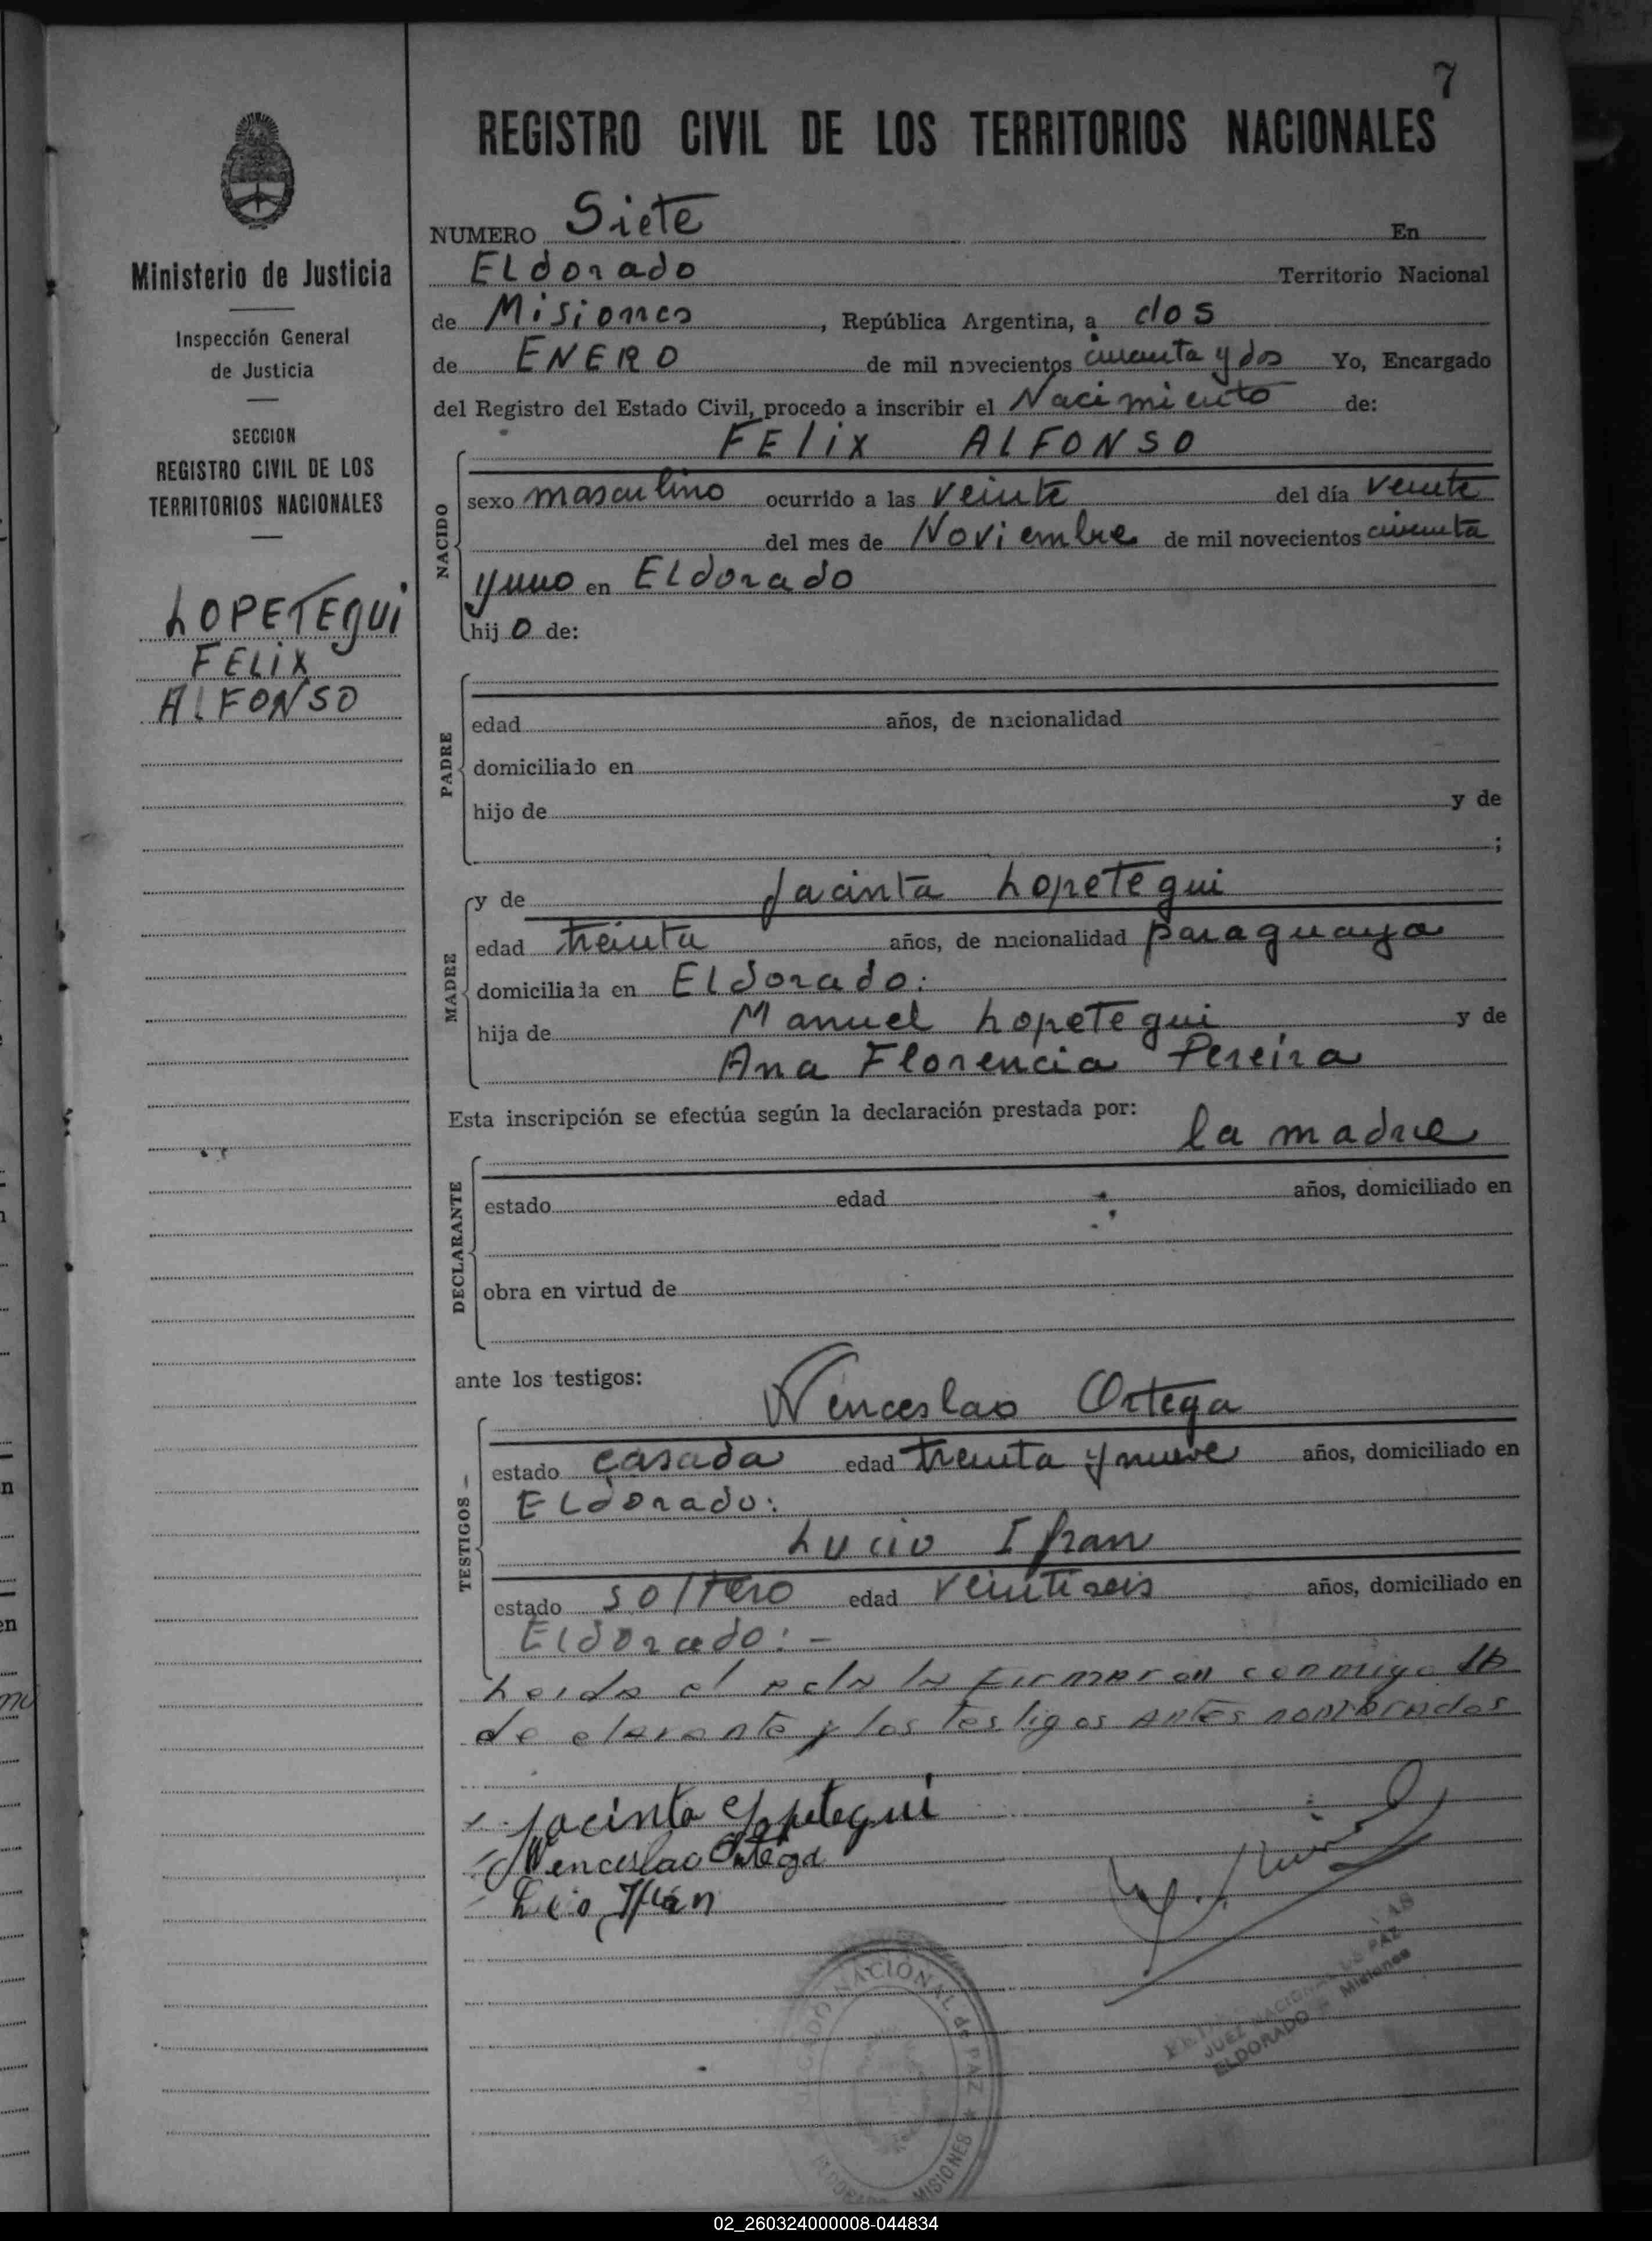 7
REGISTRO CIVIL DE LOS TERRITORIOS NACIONALES
Ministerio de Justicia
Inspección General
de Justicia
SECCION
REGISTRO CIVIL DE LOS
TERRITORIOS NACIONALES
LOPETEGUI
FELIX
ALFONSO
NUMERO Siete En
ELdorado Territorio Nacional
de Misiones, República Argentina, a dos
de ENERO de mil novecientos cincuenta y dos Yo, Encargado
del Registro del Estado Civil, procedo a inscribir el Nacimiento de:
FELIX ALFONSO
NACIDO
sexo masculino ocurrido a las veinte del día veinte
del mes de Noviembre de mil novecientos cincuenta
y uno en ELdorado
hijo de:
PADRE
edad años, de nacionalidad
domiciliado en
hijo de y de
;
MADRE
y de Jacinta Lopetegui
edad treinta años, de nacionalidad paraguaya
domiciliada en ELdorado.
hija de Manuel Lopetegui y de
Ana Florencia Pereira
Esta inscripción se efectúa según la declaración prestada por:
la madre
DECLARANTE
estado edad años, domiciliado en
obra en virtud de
ante los testigos:
Wenceslao Ortega
TESTIGOS
estado casada edad treinta y nueve años, domiciliado en
ELdorado.
Lucio Ifran
estado soltero edad veintiseis años, domiciliado en
ELdorado. -
Leida el acta la firmaron conmigo la
declarante y los testigos antes nombrados
Jacinta Lopetegui
Wenceslao Ortega
Ifrán
NACIONAL de PAZ
MISIONES
JUEZ NACIONAL DE PAZ
ELDORADO - Misiones
02_260324000008-044834